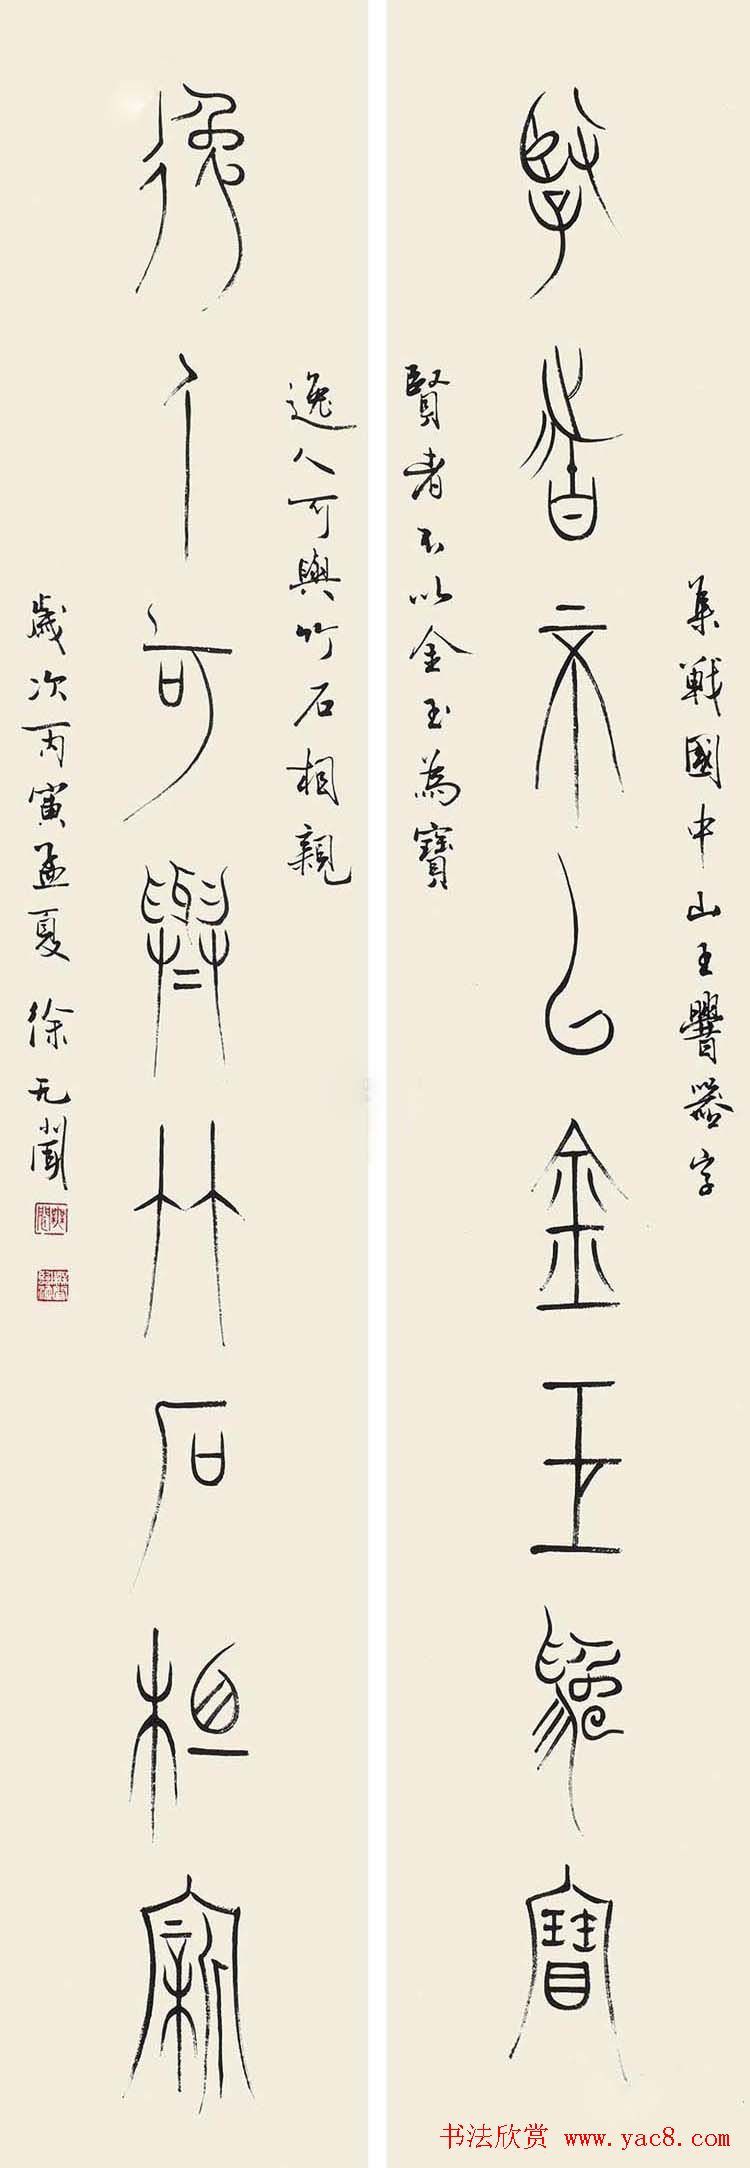 集戰國中山王䰜器字
賢者不以金玉為寶
賢者不以金玉為寶
逸人可與竹石相親
逸人可與竹石相親
歲次丙寅孟夏 徐无聞
书法欣赏 www.yac8.com